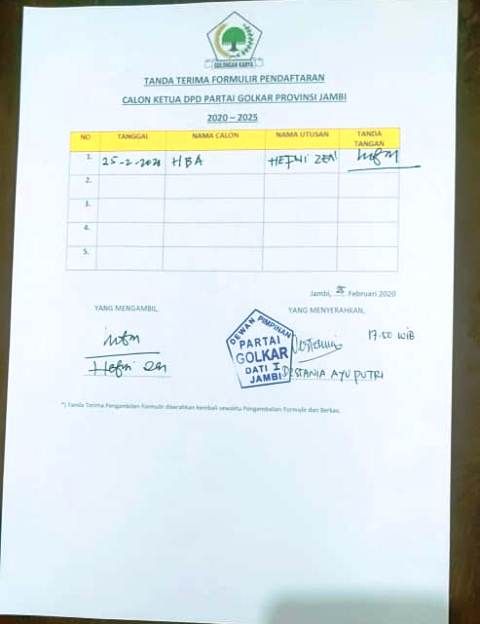 GOLONGAN KARYA
TANDA TERIMA FORMULIR PENDAFTARAN
CALON KETUA DPD PARTAI GOLKAR PROVINSI JAMBI
2020 – 2025
NO TANGGAL NAMA CALON NAMA UTUSAN TANDA TANGAN
1. 25-2-2020 HBA HEFNI ZEN
2.
3.
4.
5.
Jambi, 25 Februari 2020
YANG MENGAMBIL, YANG MENYERAHKAN,
DEWAN PIMPINAN
PARTAI
GOLKAR
DATI I
JAMBI
17.50 WIB
Hefni Zen DESTANIA AYU PUTRI
*) Tanda Terima Pengambilan Formulir diserahkan kembali sewaktu Pengembalian Formulir dan Berkas.